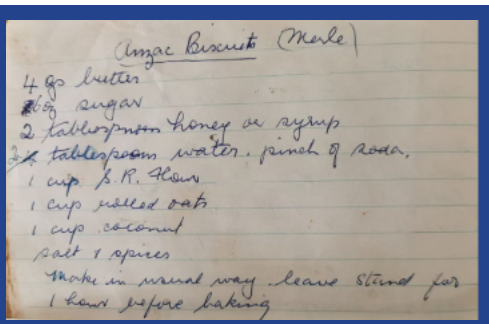 Anzac Biscuits (Merle)
4 ozs butter
6oz sugar
2 tablespoons honey or syrup
2 tablespoons water. pinch of soda.
1 cup S.R. Flour
1 cup rolled oats
1 cup coconut
salt & spices
Make in usual way. leave stand for
1 hour before baking